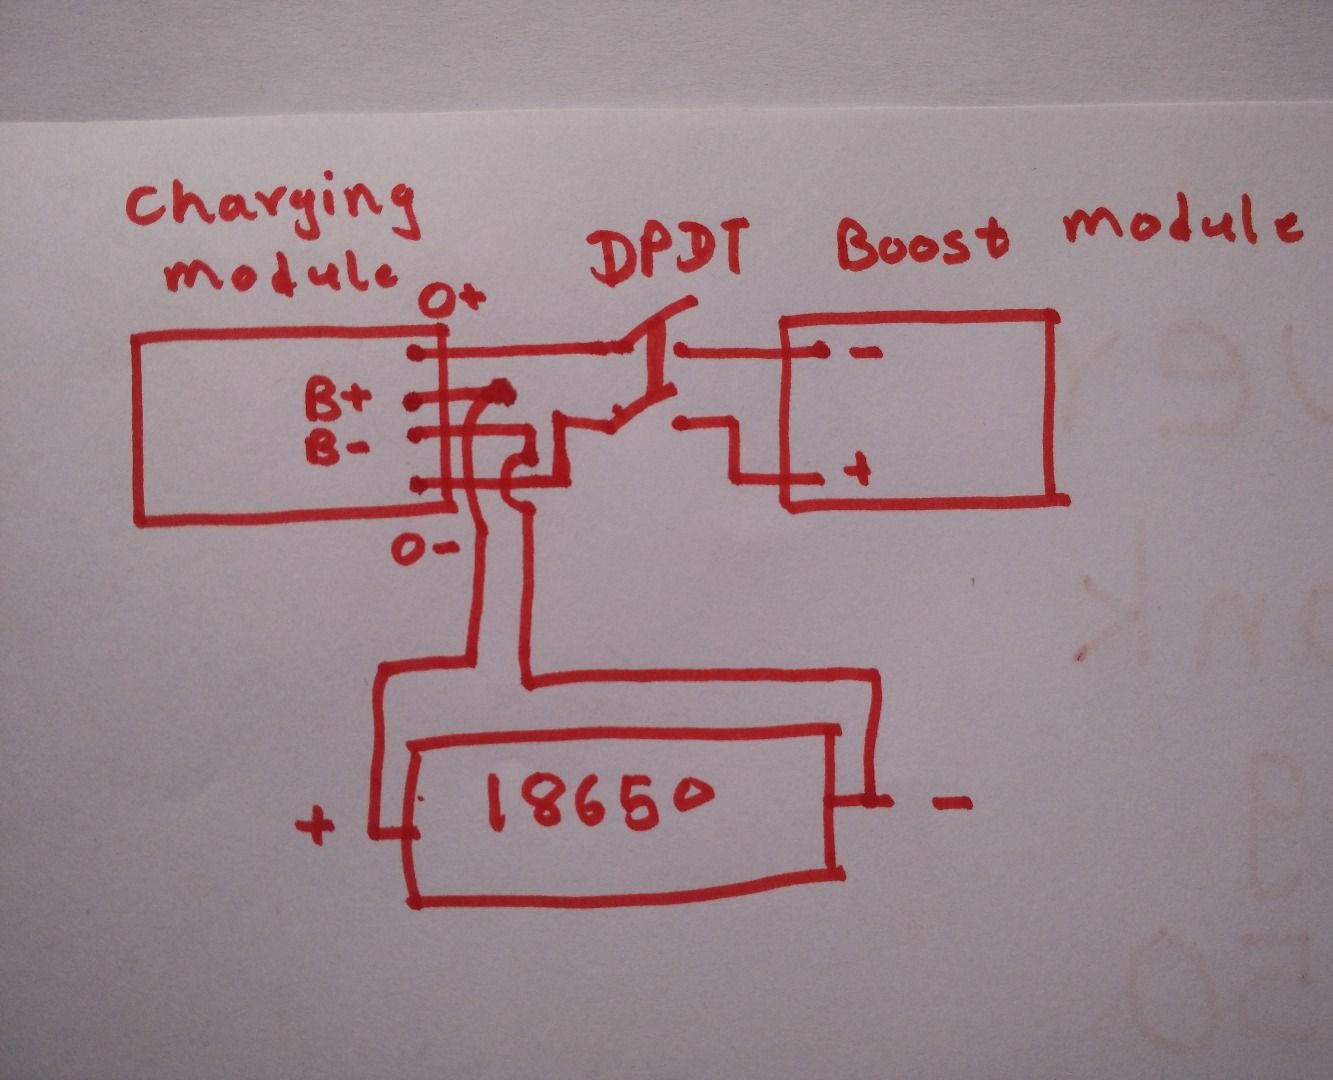 Charging
module
O+
DPDT
Boost module
B+
B-
-
+
O-
18650
+
-